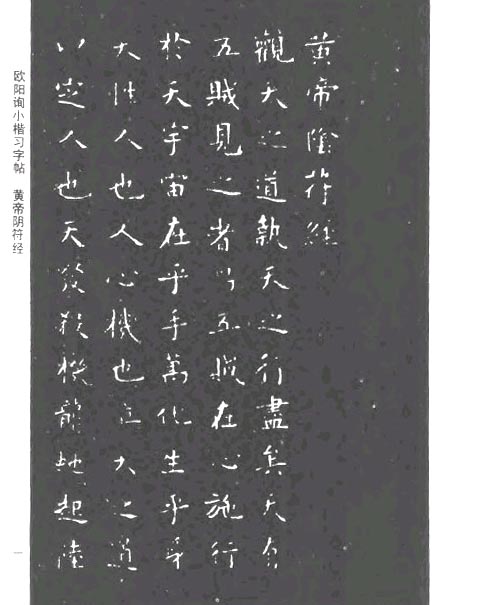 黄帝陰符經
觀天之道執天之行盡矣天有
五賊見之者昌五賊在心施行
於天宇宙在乎手萬化生乎身
天性人也人心機也立天之道
以定人也天發殺機龍虵起陸
欧阳询小楷习字帖 黄帝阴符经
一